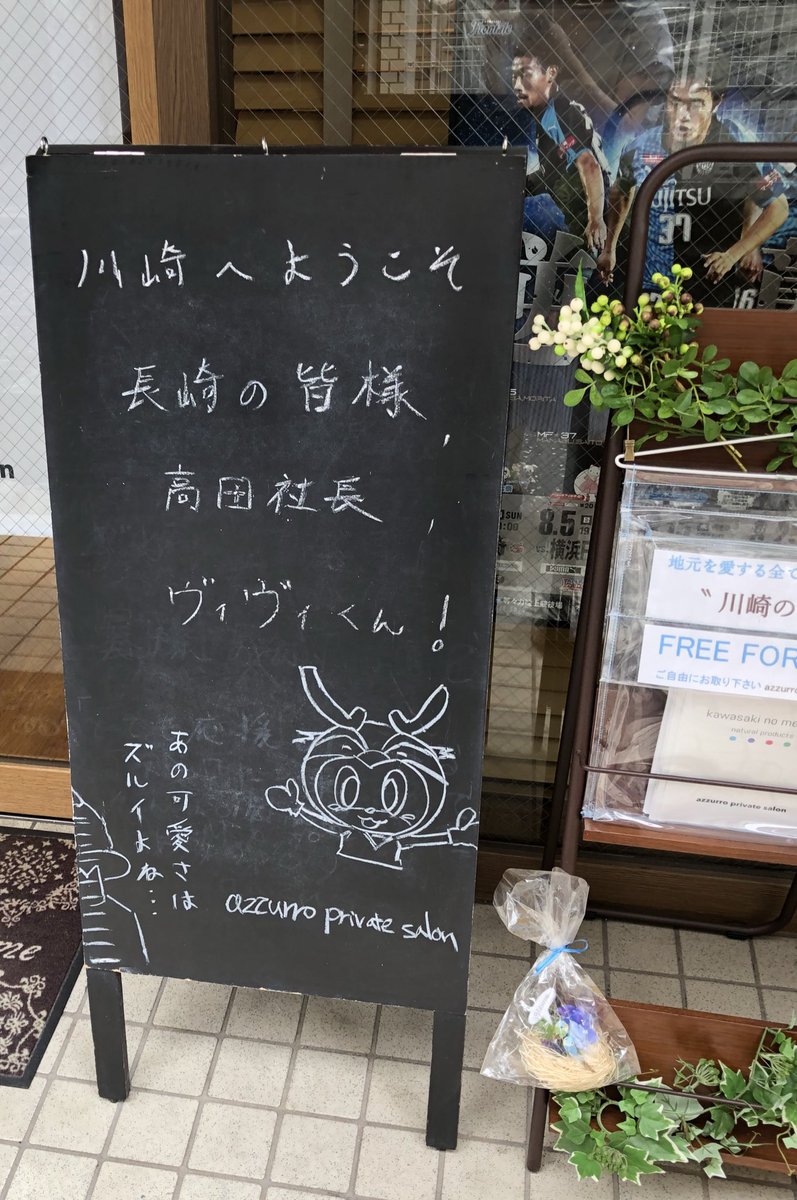 川崎へようこそ
長崎の皆様、
高田社長、
ヴィヴィくん!
あの可愛さは
ズルイよね…
azzurro private salon
FUJITSU
37
16
MF 37
8.5
SUN
VS
横浜
地元を愛する全て
〝川崎の
FREE FOR
ご自由にお取り下さい azzurro
kawasaki no me
natural products
azzurro private salon
me